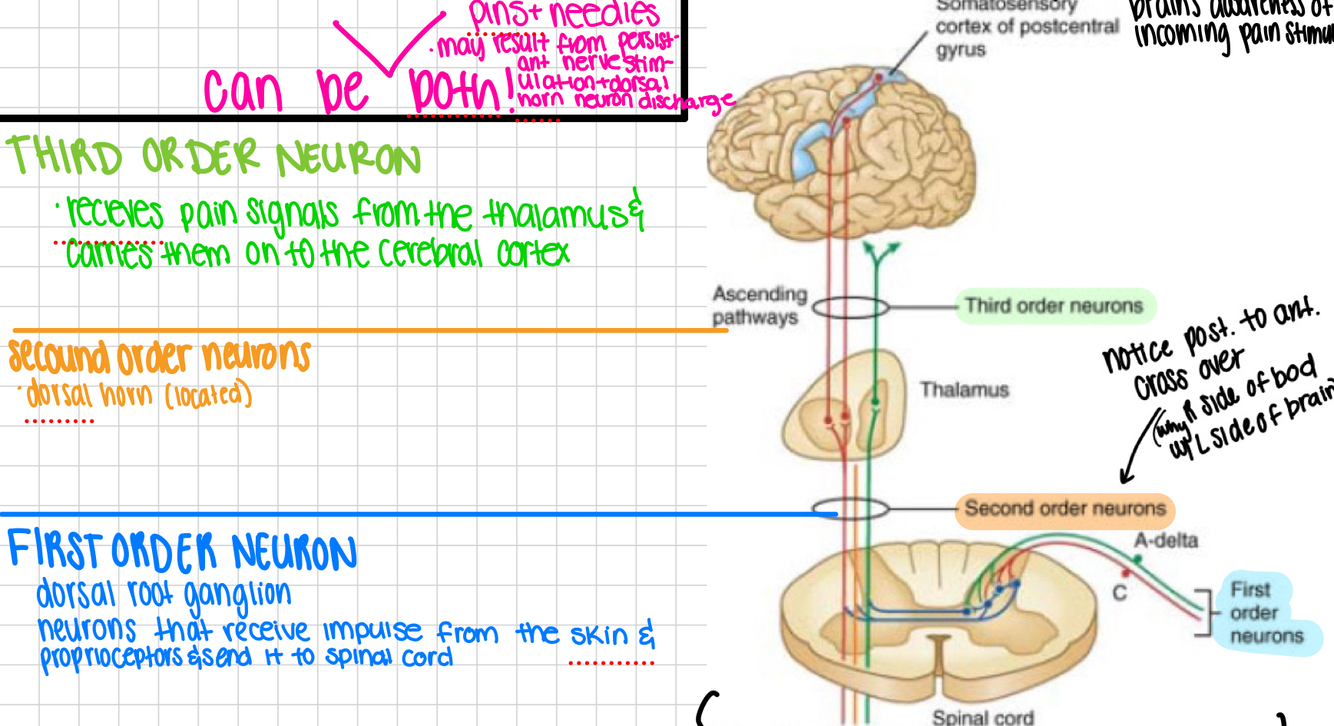 pins+ needles
·may result from persist-
ant nerve stim-
ulation+dorsal
horn neuron discharge
can be both!
THIRD ORDER NEURON
·recieves pain signals from the thalamus &
carries them on to the cerebral cortex
secound order neurons
·dorsal horn (located)
FIRST ORDER NEURON
dorsal root ganglion
neurons that receive impulse from the skin &
proprioceptors & send it to spinal cord
Somatosensory
cortex of postcentral
gyrus
brain's awareness of
incoming pain stimu
Ascending
pathways
Third order neurons
notice post. to ant.
cross over
(why R side of bod
w/ L side of brain
Thalamus
Second order neurons
A-delta
C
First
order
neurons
Spinal cord